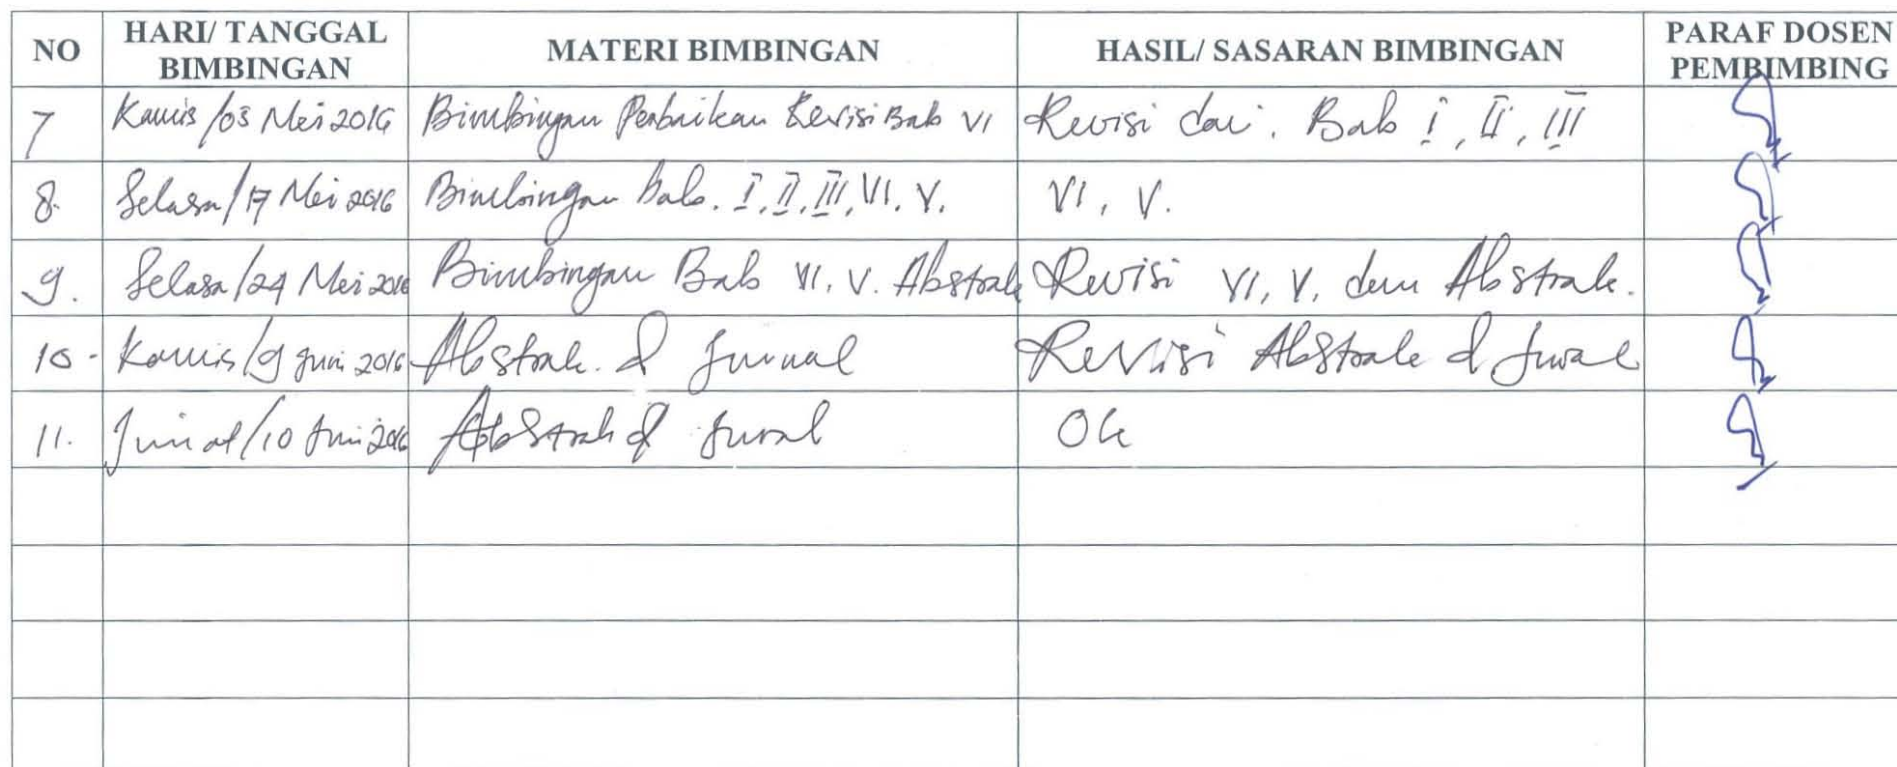 NO HARI/ TANGGAL BIMBINGAN MATERI BIMBINGAN HASIL/ SASARAN BIMBINGAN PARAF DOSEN PEMBIMBING
7 Kamis /05 Mei 2016 Bimbingan Perbaikan Revisi Bab VI Revisi dari. Bab I, II, III
8. Selasa/17 Mei 2016 Bimbingan bab. I, II, III, VI, V. VI, V.
9. Selasa/24 Mei 2016 Bimbingan Bab VI, V. Abstrak Revisi VI, V, dan Abstrak.
10- Kamis/9 Juni 2016 Abstrak. & Jurnal Revisi Abstrak & Jurnal
11. Jumat/10 Juni 2016 Abstrak & Jurnal Ok